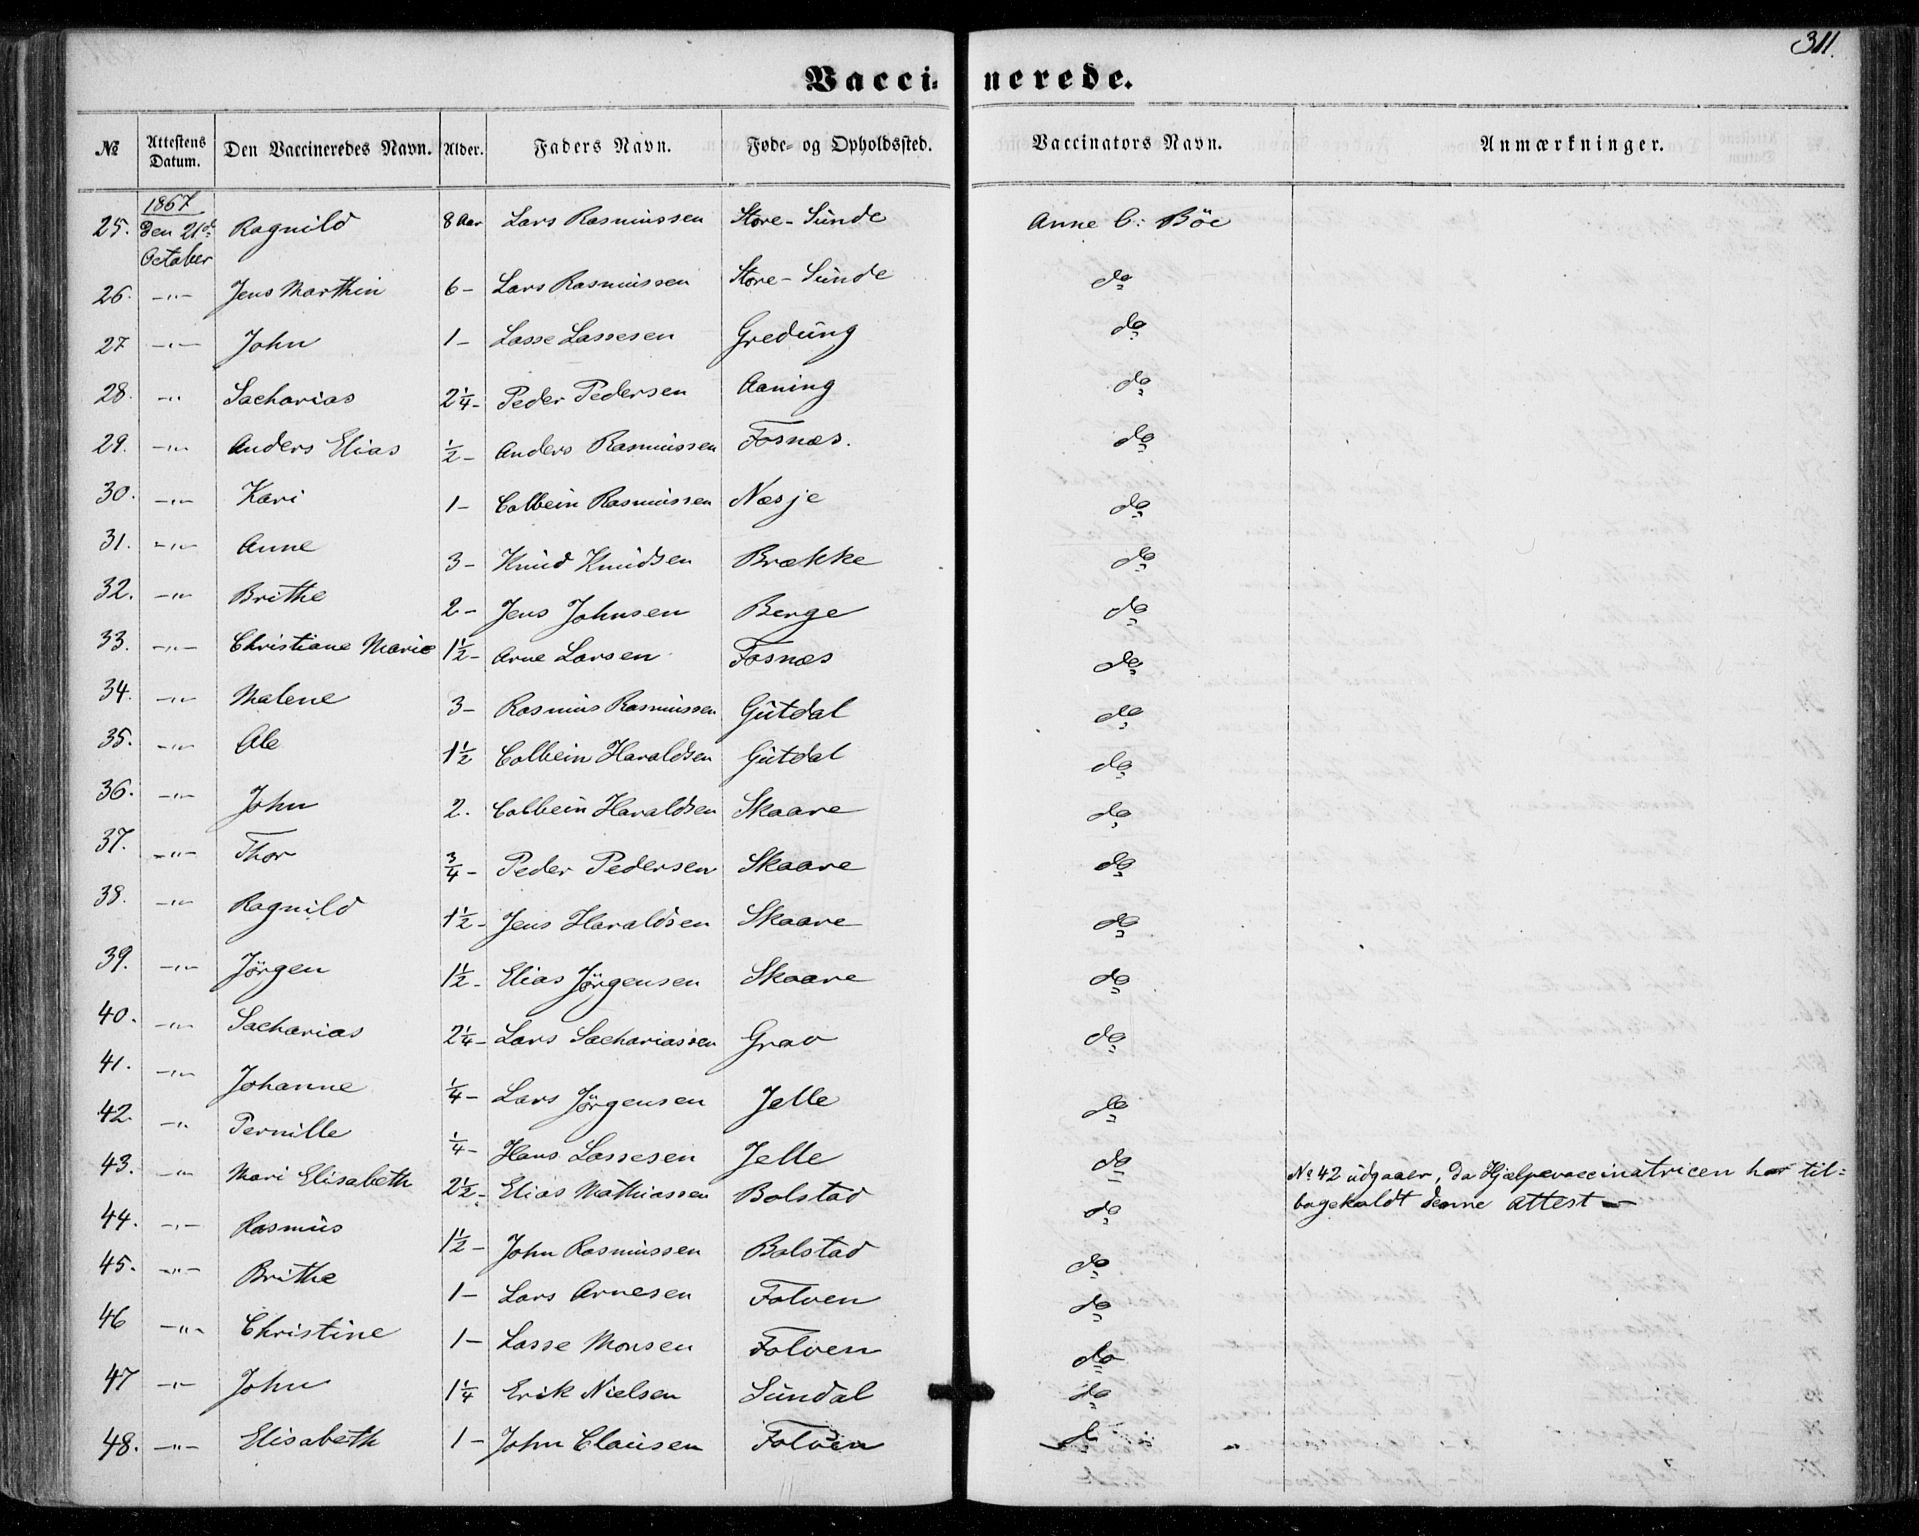 311.
Vaccinerede.
№ Attestens Datum. Den Vaccineredes Navn. Alder. Faders Navn. Føde- og Opholdssted. Vaccinators Navn. Anmærkninger.
1867
25. Den 21de October Ragnild 8 Aar Lars Rasmussen Store-Sunde Anne C: Böe
26. -"- Jens Marthin 6- Lars Rasmussen Store-Sunde do
27 -"- John 1- Lasse Lassesen Greding do
28. -"- Sacharias 2¼- Peder Pedersen Aaning do
29. -"- Anders Elias ½- Anders Rasmussen Fosnæs. do
30. -"- Kari 1- Colbein Rasmussen Næsje do
31. -"- Anne 3- Knud Knudsen Brække do
32. -"- Brithe 2- Jens Johnsen Berge do
33. -"- Christiane Marie 1½- Arne Larsen Fosnæs do
34. -"- Malene 3- Rasmus Rasmussen Gutdal do
35. -"- Ole 1½ Colbein Haraldsen Gutdal do
36. -"- John 2. Colbein Haraldsen Skaare do
37. -"- Thor ¾- Peder Pedersen Skaare do
38. -"- Ragnild 1½- Jens Haraldsen Skaare do
39. -"- Jörgen 1½- Elias Jörgensen Skaare do
40. -"- Sacharias 2¼- Lars Sachariassen Grav do
41. -"- Johanne ¼- Lars Jörgensen Jelle do
42. -"- Pernille ¼- Hans Lassesen Jelle do
№ 42 udgaaer, da Hjælpevaccinatricen har til=
bagekaldt denne Attest —
43. -"- Mari Elisabeth 2½- Elias Mathiassen Bolstad do
44. -"- Rasmus 1½- John Rasmussen Bolstad do
45. -"- Brithe 1- Lars Arnesen Folven do
46 -"- Christine 1- Lasse Monsen Folven do
47 -"- John 1¼ Erik Nielsen Sundal do
48. -"- Elisabeth 1- John Clausen Folven do